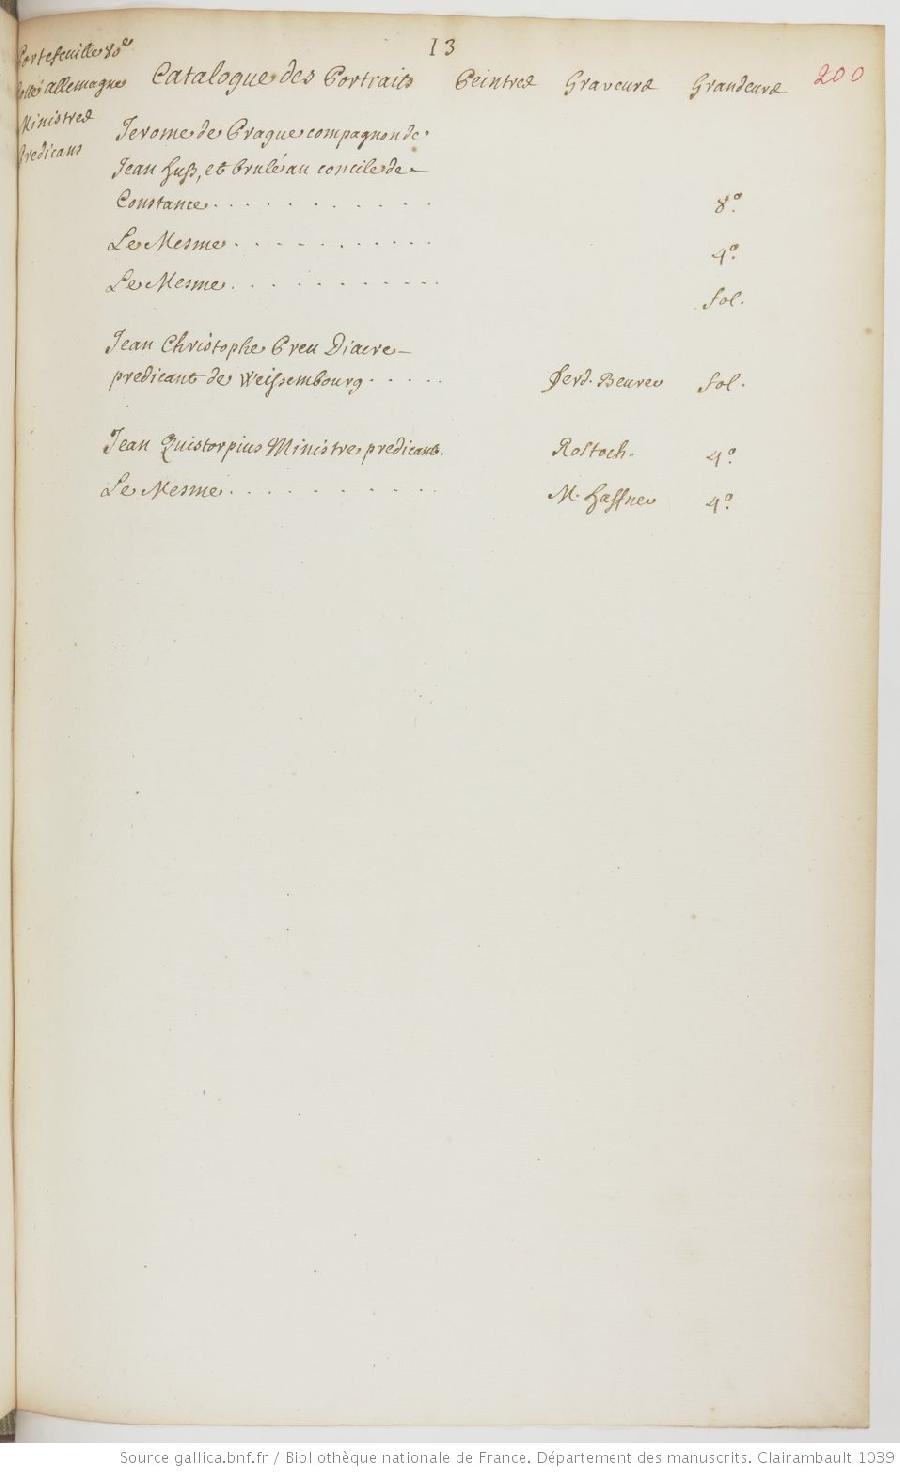 13
200
Portefeuille 80e
Cotté allemagne
Ministres
Predicans
Catalogue des Portraits Peintres Graveurs Grandeurs
Jerome de Prague compagnon de
Jean Huss, et brulé au concile de
Constance. . . . . . . . . . . 8o.
Le Mesme . . . . . . . . . . . 4o.
Le Mesme . . . . . . . . . . . fol.
Jean Christophe Preu Diacre
predicant de Weissembourg . . . . . Ferd. Beurer fol.
Jean Quistorpius Ministre predicant. Rostoch. 4o.
Le Mesme . . . . . . . . . . . M. Haffner 4o.
Source gallica.bnf.fr / Bibliothèque nationale de France. Département des manuscrits. Clairambault 1039